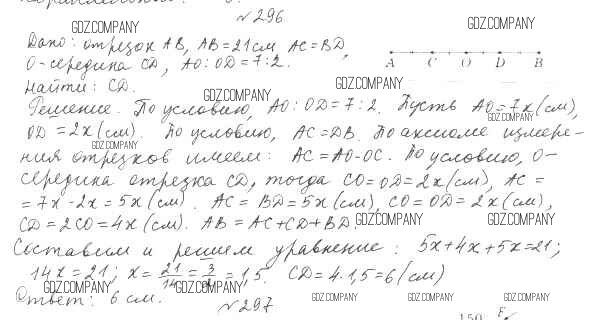 № 296
GDZ.COMPANY GDZ.COMPANY
Дано: отрезок AB, AB = 21 см AC = BD,
O - середина CD, AO : OD = 7 : 2.
A C O D B
Найти: CD.
GDZ.COMPANY GDZ.COMPANY
Решение. По условию, AO : OD = 7 : 2. Пусть AO = 7x (см),
GDZ.COMPANY
OD = 2x (см). По условию, AC = DB. По аксиоме измере-
GDZ.COMPANY
ния отрезков имеем: AC = AO - OC. По условию, O -
середина отрезка CD, тогда CO = OD = 2x (см), AC =
= 7x - 2x = 5x (см). AC = BD = 5x (см), CO = OD = 2x (см),
CD = 2CO = 4x (см). AB = AC + CD + BD.
GDZ.COMPANY GDZ.COMPANY
Составим и решем уравнение: 5x + 4x + 5x = 21;
14x = 21; x = 21/14 = 3/2 = 1,5. CD = 4 · 1,5 = 6 (см)
GDZ.COMPANY GDZ.COMPANY
Ответ: 6 см.
GDZ.COMPANY GDZ.COMPANY GDZ.COMPANY
№ 297
150 F